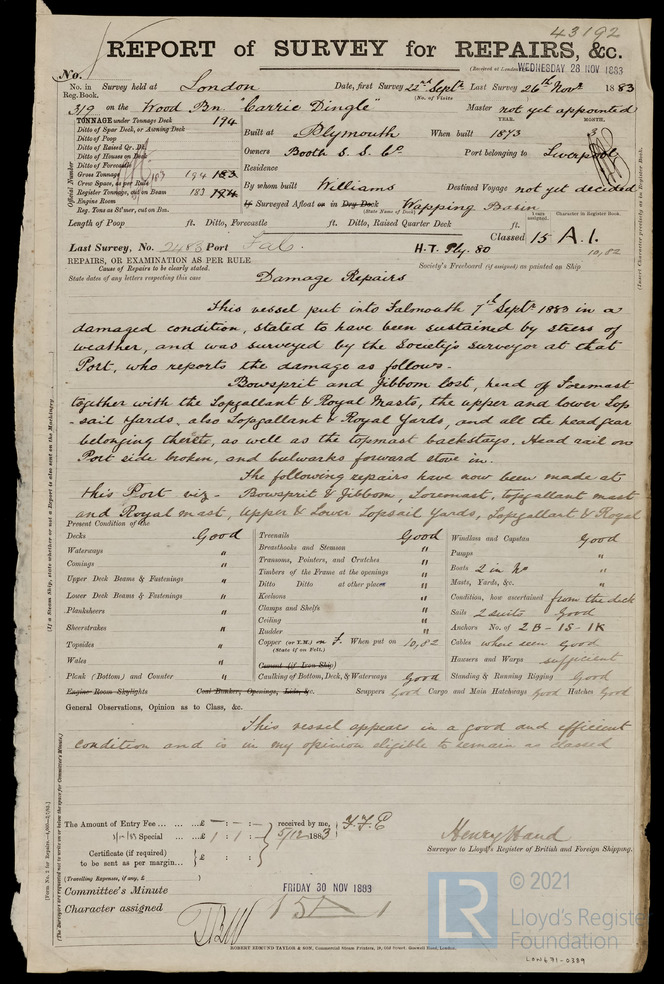 43192
REPORT of SURVEY for REPAIRS, &c.
(Received at London WEDNESDAY 28 NOV 1883
No.
No. in Reg. Book. Survey held at London Date, first Survey 22nd Septr Last Survey 26th Novr. 1883
(No. of Visits)
319 on the Wood Bn. "Carrie Dingle" Master not yet appointed
TONNAGE under Tonnage Deck 194
Ditto of Spar Deck, or Awning Deck
Ditto of Poop
Ditto of Raised Qr. Dk.
Ditto of Houses on Deck
Ditto of Forecastle
Gross Tonnage 194 183
Crew Space, as per Rule
Register Tonnage, cut on Beam 183 194
Engine Room
Reg. Tons as St'mer, cut on Bm.
Official Number
Built at Plymouth When built YEAR. 1873 MONTH. 3
Owners Booth S. S. Co. Port belonging to Liverpool
Residence
By whom built Williams Destined Voyage not yet decided
If Surveyed Afloat or in Dry Dock Wapping Basin
(State Name of Dock)
Length of Poop ft. Ditto, Forecastle ft. Ditto, Raised Quarter Deck ft.
Years assigned. Character in Register Book.
Classed 15 A.1.
10,82
Last Survey, No. 2486 Port Fal.
H.T. Ply. 80
REPAIRS, OR EXAMINATION AS PER RULE
Society's Freeboard (if assigned) as painted on Ship
Cause of Repairs to be clearly stated.
State dates of any letters respecting this case
Damage Repairs
This vessel put into Falmouth 7th Septr 1883 in a
damaged condition, stated to have been sustained by stress of
weather, and was surveyed by the Society's Surveyor at that
Port, who reports the damage as follows.-
Bowsprit and Jibbom lost, head of Foremast
together with the Topgallant & Royal Masts, the upper and lower Top
-sail Yards, also Topgallant & Royal Yards, and all the head gear
belonging thereto, as well as the topmast backstays. Head rail on
Port side broken, and bulwarks forward stove in.
The following repairs have now been made at
this Port viz- Bowsprit & Jibbom, Foremast, topgallant mast
and Royal mast, Upper & Lower Topsail Yards, Topgallant & Royal
Present Condition of the
Decks Good
Waterways "
Comings "
Upper Deck Beams & Fastenings "
Lower Deck Beams & Fastenings "
Planksheers "
Sheerstrakes "
Topsides "
Wales "
Plank (Bottom) and Counter "
Engine Room Skylights
Treenails Good
Breasthooks and Stemson "
Transoms, Pointers, and Crutches "
Timbers of the Frame at the openings "
Ditto Ditto at other places "
Keelsons "
Clamps and Shelfs "
Ceiling "
Rudder "
Copper (or Y.M.) on F. When put on 10,82
(State if on Felt.)
Cement (if Iron Ship)
Caulking of Bottom, Deck, & Waterways Good
Coal Bunker, Openings, Lids, &c.
Windlass and Capstan Good
Pumps "
Boats 2 in No "
Masts, Yards, &c. "
Condition, how ascertained from the deck
Sails 2 suits Good
Anchors No. of 2B - 1S - 1K
Cables where seen good
Hawsers and Warps sufficient
Standing & Running Rigging Good
Scuppers Good Cargo and Main Hatchways Good Hatches Good
General Observations, Opinion as to Class, &c.
This vessel appears in a good and efficient
condition and is in my opinion eligible to remain as classed
The Amount of Entry Fee ... ...£ - : - : - received by me,
Special ... ...£ 1 : 1 : - 5/12 1883
Certificate (if required) to be sent as per margin... £ : :
(Travelling Expenses, if any, £ )
Henry Hand
Surveyor to Lloyd's Register of British and Foreign Shipping.
Committee's Minute FRIDAY 30 NOV 1883
Character assigned 15A1
ROBERT EDMUND TAYLOR & SON, Commercial Steam Printers, 19, Old Street, Goswell Road, London.
LR © 2021
Lloyd's Registe
Foundation
LON671-0389
(Insert Character precisely as in Register Book.)
(If a Steam Ship, state whether or not a Report is also sent on the Machinery.
(The Surveyors are requested not to write on or below the space for Committee's Minute.)